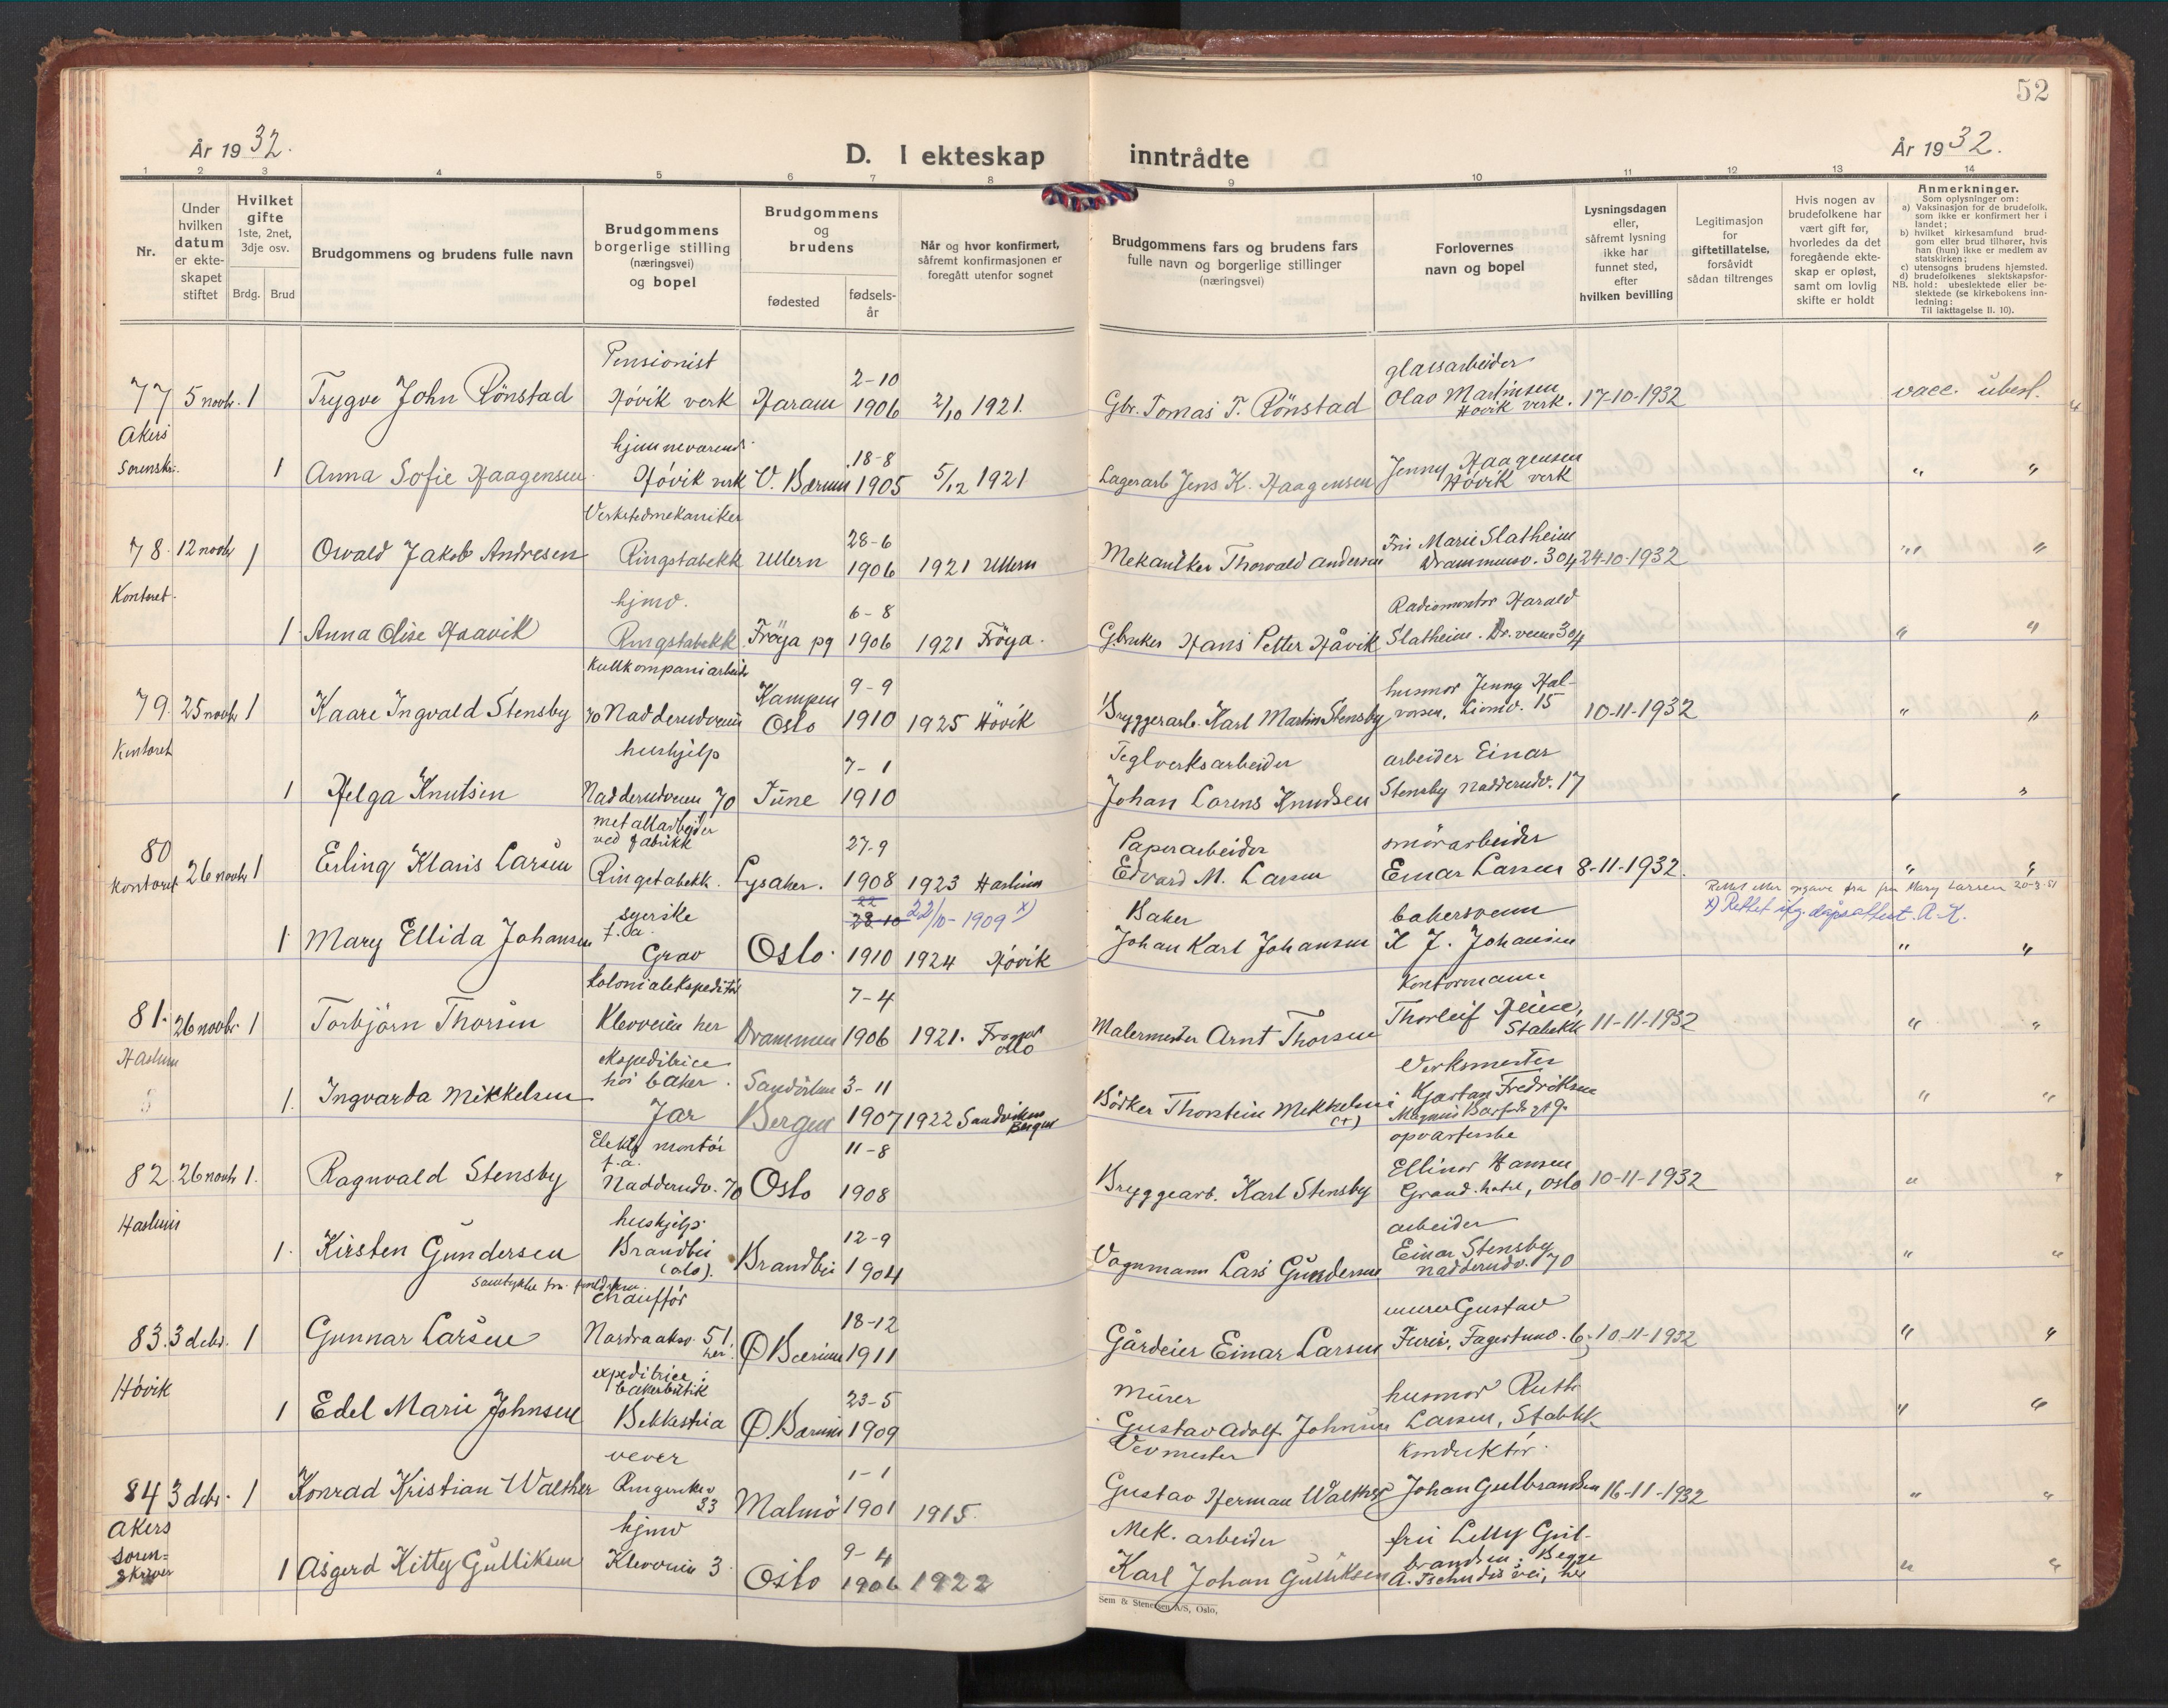 52
År 1932.
D. I ekteskap inntrådte
År 1932.
1 2 3 4 5 6 7 8 9 10 11 12 13 14
Nr.
Under hvilken datum er ekteskapet stiftet
Hvilket gifte 1ste, 2net, 3dje osv.
Brdg. Brud
Brudgommens og brudens fulle navn
Brudgommens borgerlige stilling (næringsvei) og bopel
Brudgommens og brudens
fødested
fødselsår
Når og hvor konfirmert, såfremt konfirmasjonen er foregått utenfor sognet
Brudgommens fars og brudens fars fulle navn og borgerlige stillinger (næringsvei)
Forlovernes navn og bopel
Lysningsdagen eller, såfremt lysning ikke har funnet sted, efter hvilken bevilling
Legitimasjon for giftetillatelse, forsåvidt sådan tiltrenges
Hvis nogen av brudefolkene har vært gift før, hvorledes da det foregående ekteskap er opløst, samt om lovlig skifte er holdt
Anmerkninger.
Som oplysninger om:
a) Vaksinasjon for de brudefolk, som ikke er konfirmert her i landet;
b) hvilket kirkesamfund brudgom eller brud tilhører, hvis han (hun) ikke er medlem av statskirken;
c) utensogns brudens hjemsted.
d) brudefolkenes slektskapsforhold: ubeslektede eller beslektede (se kirkebokens innledning:
NB.
Til iakttagelse II. 10).
77 5 novbr. 1 Trygve John Rönstad Pensionist Høvik verk Haram 2-10 1906 2/10 1921. Gbr. Tomas T. Rönstad glassarbeider Olav Martinsen Høvik verk. 17-10-1932 vacc. ubesl.
Akers Sorenskr. 1 Anna Sofie Haagensen hjemmeværende Høvik verk V. Bærum 18-8 1905 5/12 1921 Lagerarb Jens K. Haagensen Jenny Haagensen Høvik verk " "
78. 12 novbr 1 Osvald Jakob Andresen Verkstedmekaniker Ringstabekk Ullern 28-6 1906 1921 Ullern Mekaniker Thorvald Andersen Fru Marie Slatheim Drammensv. 304 24-10-1932 " "
Kontoret. 1 Anna Olise Haavik hjmv. Ringstabekk Fröya pg 6-8 1906 1921 Fröya. Gbruker Hans Petter Håvik Radiomontör Harald Slatheim. Dr. veien 304 " "
79. 25 novbr 1 Kaare Ingvald Stensby Kullkompaniarbeider 70 Nadderudveien Kampen Oslo 9-9 1910 1925 Høvik Bryggerarb. Karl Martin Stensby husmor Jenny Halvorsen, Liomv. 15 10-11-1932 " "
Kontoret 1 Helga Knutsen hushjelp Nadderudveien 70 Tune 7-1 1910 Teglverksarbeider Johan Lorens Knudsen arbeider Einar Stensby Nadderudv. 17 " "
80 Kontoret 26 novbr 1 Erling Klaris Larsen metallarbeider ved fabrikk Ringstabekk. Lysaker. 27-9 1908 1923 Haslum Paperarbeider Edvard M. Larsen smörarbeider Einar Larsen 8-11-1932. " "
Rettet efter opgave fra fru Mary Larsen 20-3-51
x) Rettet iflg. dåpsattest. A.K.
1 Mary Ellida Johansen syerske f. a. Grav Oslo. 22 28-10 22/10-1909 x) 1910 1924 Høvik Baker Johan Karl Johansen bakersvenn K J. Johansen " "
81. 26 novbr 1 Torbjörn Thorsen kolonialekspeditör Kleivveien her Drammen 7-4 1906 1921. Frogner Oslo Malermester Arnt Thorsen Kontormann Thorleif Heine, Stabekk 11-11-1932 " "
Haslum 1. Ingvarda Mikkelsen ekspeditrice hos baker. Jar Sandviken Bergen 3-11 1907 1922 Sandviken Bergen Bödker Thorstein Mikkelsen (+) Verksmester Kjartan Fredriksen Magnus Barfods gt 9. " "
82. 26 novbr 1. Ragnvald Stensby Elektr. montör f.a. Nadderudv. 70 Oslo 11-8 1908 Bryggearb. Karl Stensby opvarterske Ellinor Hansen Grand hotel, Oslo 10-11-1932 " "
Haslum 1. Kirsten Gundersen hushjelp Brandbu (Oslo). Brandbu 12-9 1904 Vognmann Lars Gundersen arbeider Einar Stensby Nadderudv. 70 " "
samtykke fra foreldrene
83. 3 debr. 1 Gunnar Larsen chauffør Nordraaksv. 51 her. Ø Bærum 18-12 1911 Gårdeier Einar Larsen murer Gustav Furir, Fagertunv. 6. 10-11-1932 " "
Høvik 1 Edel Marie Johnsen expeditrice i bakerbutik Bekkestua Ø. Bærum 23-5 1909 Murer Gustav Adolf Johnsen husmor Ruth Larsen, Stabekk " "
84 3 debr. 1 Konrad Kristian Walther vever Ringeriksv 33 Malmö 1-1 1901 1915. Vevmester Gustav Herman Walther Konduktör. Johan Gulbrandsen 16-11-1932 " "
Akers sorenskriver 1 Asgerd Kitty Gulliksen hjmv Kleivveien 3. Oslo 9-4 1906 1922 Mek. arbeider Karl Johan Gulliksen fru Lelly Gulbrandsen; Begge A. Tschudis vei, her " "
Sem & Stenersen A/S, Oslo,